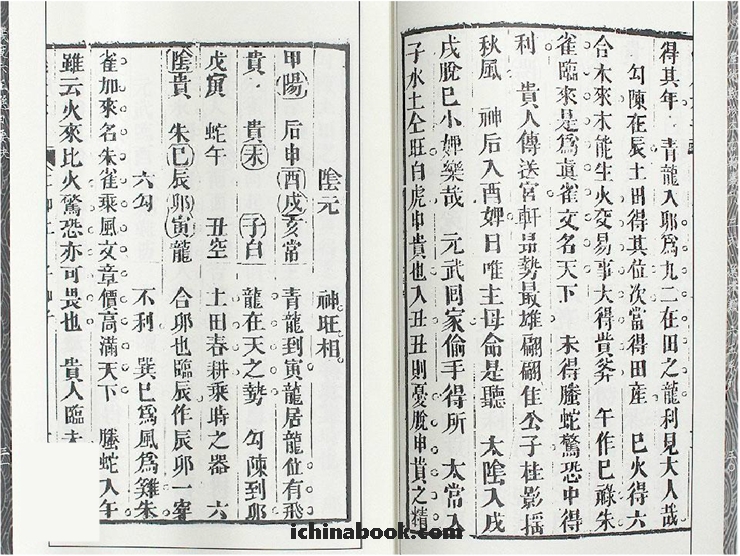 得其年 青龍入卯爲九二在田之龍利見大人哉
勾陳在辰土田得其位次當得田產 巳火得六
合木來木能生火交易事大得貴券 午作巳祿朱
雀臨來是爲眞雀文名天下 未得螣蛇驚恐中得
利 貴人傳送宮軒昻勢最雄翩翩佳公子桂影搖
秋風 神后入酉婢日唯主母命是聽 太陰入戌
戌脫巳小婢樂哉 元武回家偷手得所 太常入
子水土仝旺白虎申貴也入丑丑則憂脫申貴之精
陰元 神旺相
甲陽 后申酉戌亥常 青龍到寅龍居龍位有飛
貴 貴未 子白 龍在天之勢 勾陳到卯
戊寅 蛇午 丑空 土田春耕乘時之器 六
陰貴 朱巳辰卯寅龍 合卯也臨辰作辰卯一
六勾 不利 巽巳爲風爲雞朱
雀加來名朱雀乘風文章價高滿天下 螣蛇入午
雖云火來比火驚恐亦可畏也 貴人臨未
ichinabook.com